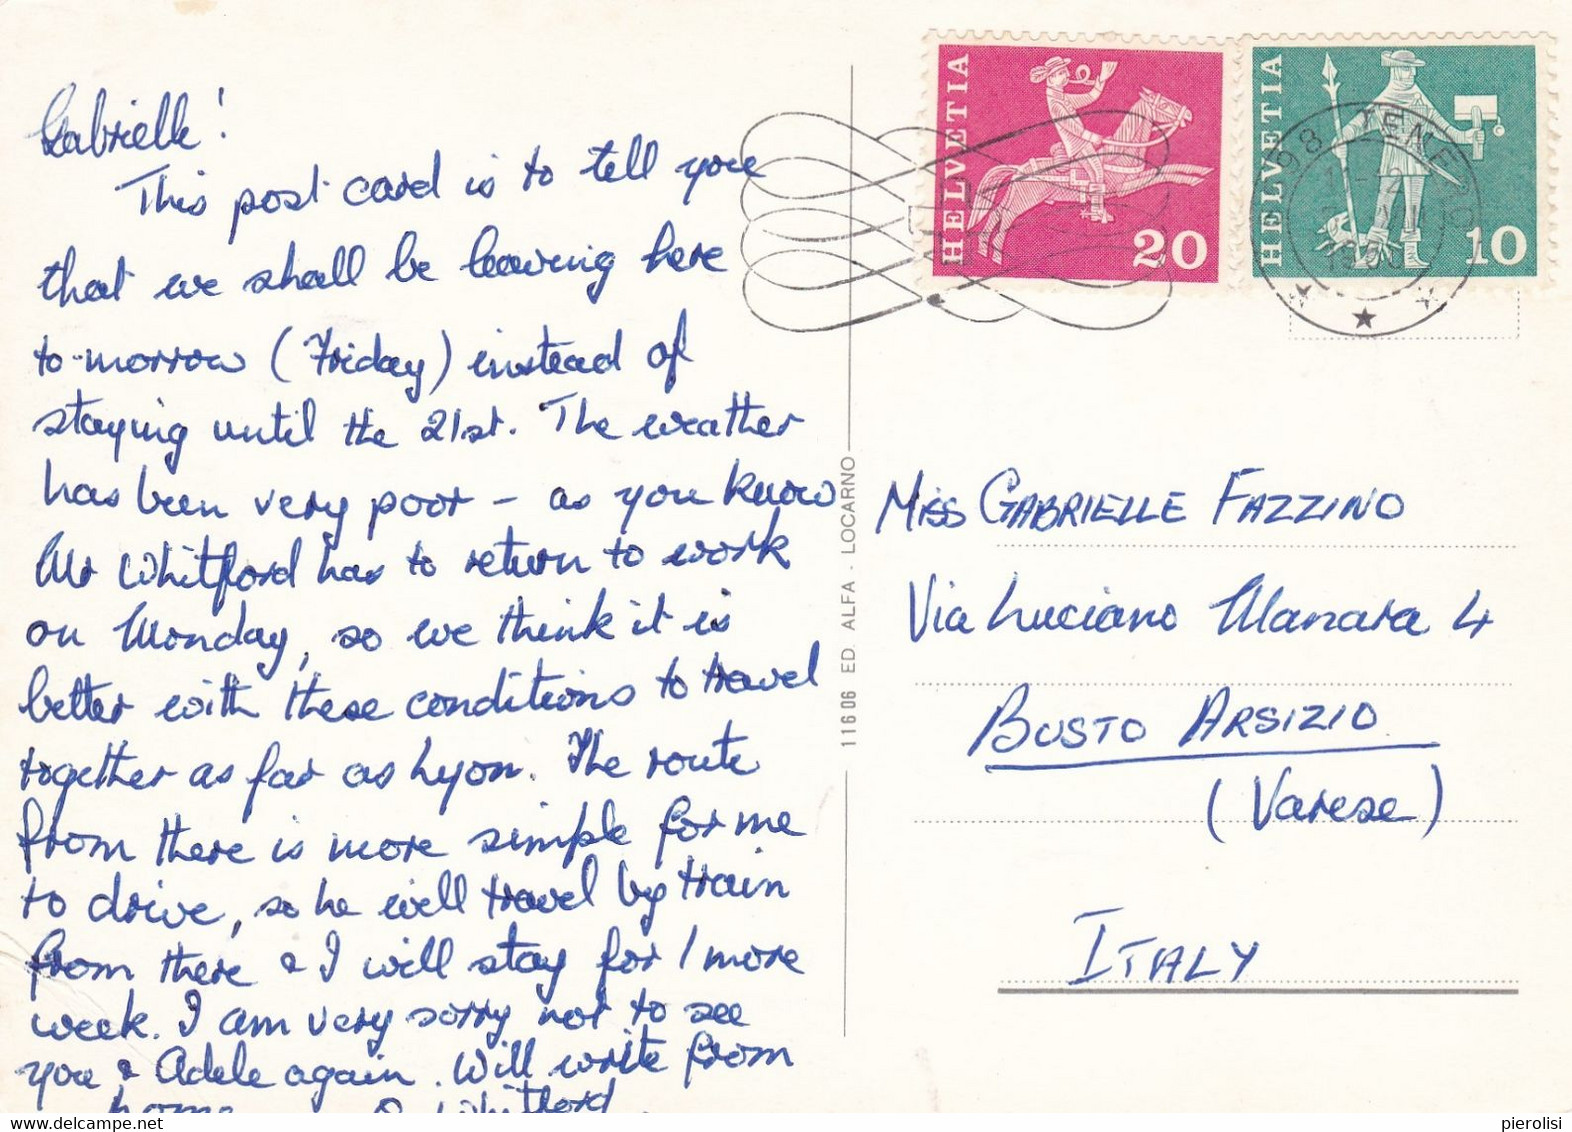 Gabrielle!
This post card is to tell you
that we shall be leaving here
to-morrow (Friday) instead of
staying until the 21st. The weather
has been very poor - as you know
Mr Whitford has to return to work
on Monday, so we think it is
better with these conditions to travel
together as far as Lyon. The route
from there is more simple for me
to drive, so he will travel by train
from there & I will stay for 1 more
week. I am very sorry not to see
you & Adele again. Will write from
home Whitford
11606 ED. ALFA - LOCARNO
HELVETIA
20
HELVETIA
10
Miss GABRIELLE FAZZINO
Via Luciano Manara 4
BUSTO ARSIZIO
(Varese)
ITALY
pierolisi